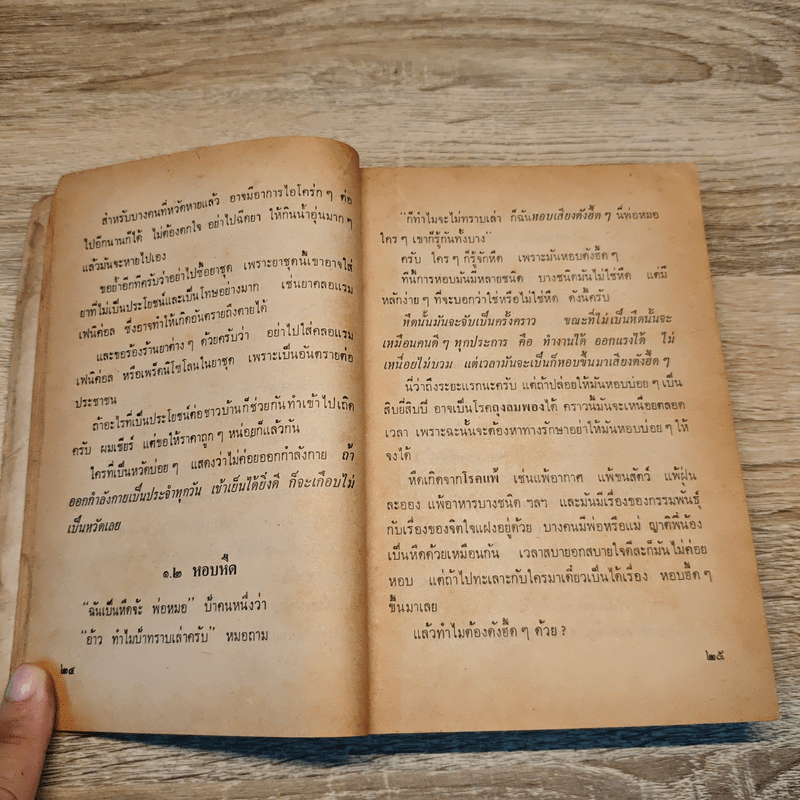 สำหรับบางคนที่หวัดหายแล้ว อาจมีอาการไอโคร่ก ๆ ต่อ
ไปอีกนานก็ได้ ไม่ต้องตกใจ อย่าไปฉีดยา ให้กินน้ำอุ่นมาก ๆ
แล้วมันจะหายไปเอง
ขอย้ำอีกทีครับว่าอย่าไปซื้อยาชุด เพราะยาชุดนี้เขาอาจใส่
ยาที่ไม่เป็นประโยชน์และเป็นโทษอย่างมาก เช่นยาคลอแรม
เฟนิค่อล ซึ่งอาจทำให้เกิดอันตรายถึงตายได้
และขอร้องร้านยาต่าง ๆ ด้วยครับว่า อย่าไปใส่คลอแรม
เฟนิค่อล หรือเพร็ดนิโซโลนในยาชุด เพราะเป็นอันตรายต่อ
ประชาชน
ถ้าอะไรที่เป็นประโยชน์ต่อชาวบ้านก็ช่วยกันทำเข้าไปเถิด
ครับ ผมเชียร์ แต่ขอให้ราคาถูก ๆ หน่อยก็แล้วกัน
ใครที่เป็นหวัดบ่อย ๆ แสดงว่าไม่ค่อยออกกำลังกาย ถ้า
ออกกำลังกายเป็นประจำทุกวัน เช้าเย็นได้ยิ่งดี ก็จะเกือบไม่
เป็นหวัดเลย
๑.๒ หอบหืด
“ฉันเป็นหืดจ้ะ พ่อหมอ” ป้าคนหนึ่งว่า
“อ้าว ทำไมป้าทราบเล่าครับ” หมอถาม
๒๔
“ก็ทำไมจะไม่ทราบเล่า ก็ฉันหอบเสียงดังฮี้ด ๆ นี่พ่อหมอ
ใคร ๆ เขาก็รู้กันทั้งบาง”
ครับ ใคร ๆ ก็รู้จักหืด เพราะมันหอบดังฮี้ด ๆ
ทีนี้การหอบมันมีหลายชนิด บางชนิดมันไม่ใช่หืด แต่มี
หลักง่าย ๆ ที่จะบอกว่าใช่หรือไม่ใช่หืด ดังนี้ครับ
หืดนั้นมันจะจับเป็นครั้งคราว ขณะที่ไม่เป็นหืดนั้นจะ
เหมือนคนดี ๆ ทุกประการ คือ ทำงานได้ ออกแรงได้ ไม่
เหนื่อยไม่บวม แต่เวลามันจะเป็นก็หอบขึ้นมาเสียงดังฮี้ด ๆ
นี่ว่าถึงระยะแรกนะครับ แต่ถ้าปล่อยให้มันหอบบ่อย ๆ เป็น
สิบยี่สิบปี อาจเป็นโรคถุงลมพองได้ คราวนี้มันจะเหนื่อยตลอด
เวลา เพราะฉะนั้นจะต้องหาทางรักษาอย่าให้มันหอบบ่อย ๆ ให้
จงได้
หืดเกิดจากโรคแพ้ เช่นแพ้อากาศ แพ้ขนสัตว์ แพ้ฝุ่น
ละออง แพ้อาหารบางชนิด ฯลฯ และมันมีเรื่องของกรรมพันธุ์
กับเรื่องของจิตใจแฝงอยู่ด้วย บางคนมีพ่อหรือแม่ ญาติพี่น้อง
เป็นหืดด้วยเหมือนกัน เวลาสบายอกสบายใจดีละก็มันไม่ค่อย
หอบ แต่ถ้าไปทะเลาะกับใครมาเดี๋ยวเป็นได้เรื่อง หอบฮี้ด ๆ
ขึ้นมาเลย
แล้วทำไมต้องดังฮี้ด ๆ ด้วย ?
๒๕